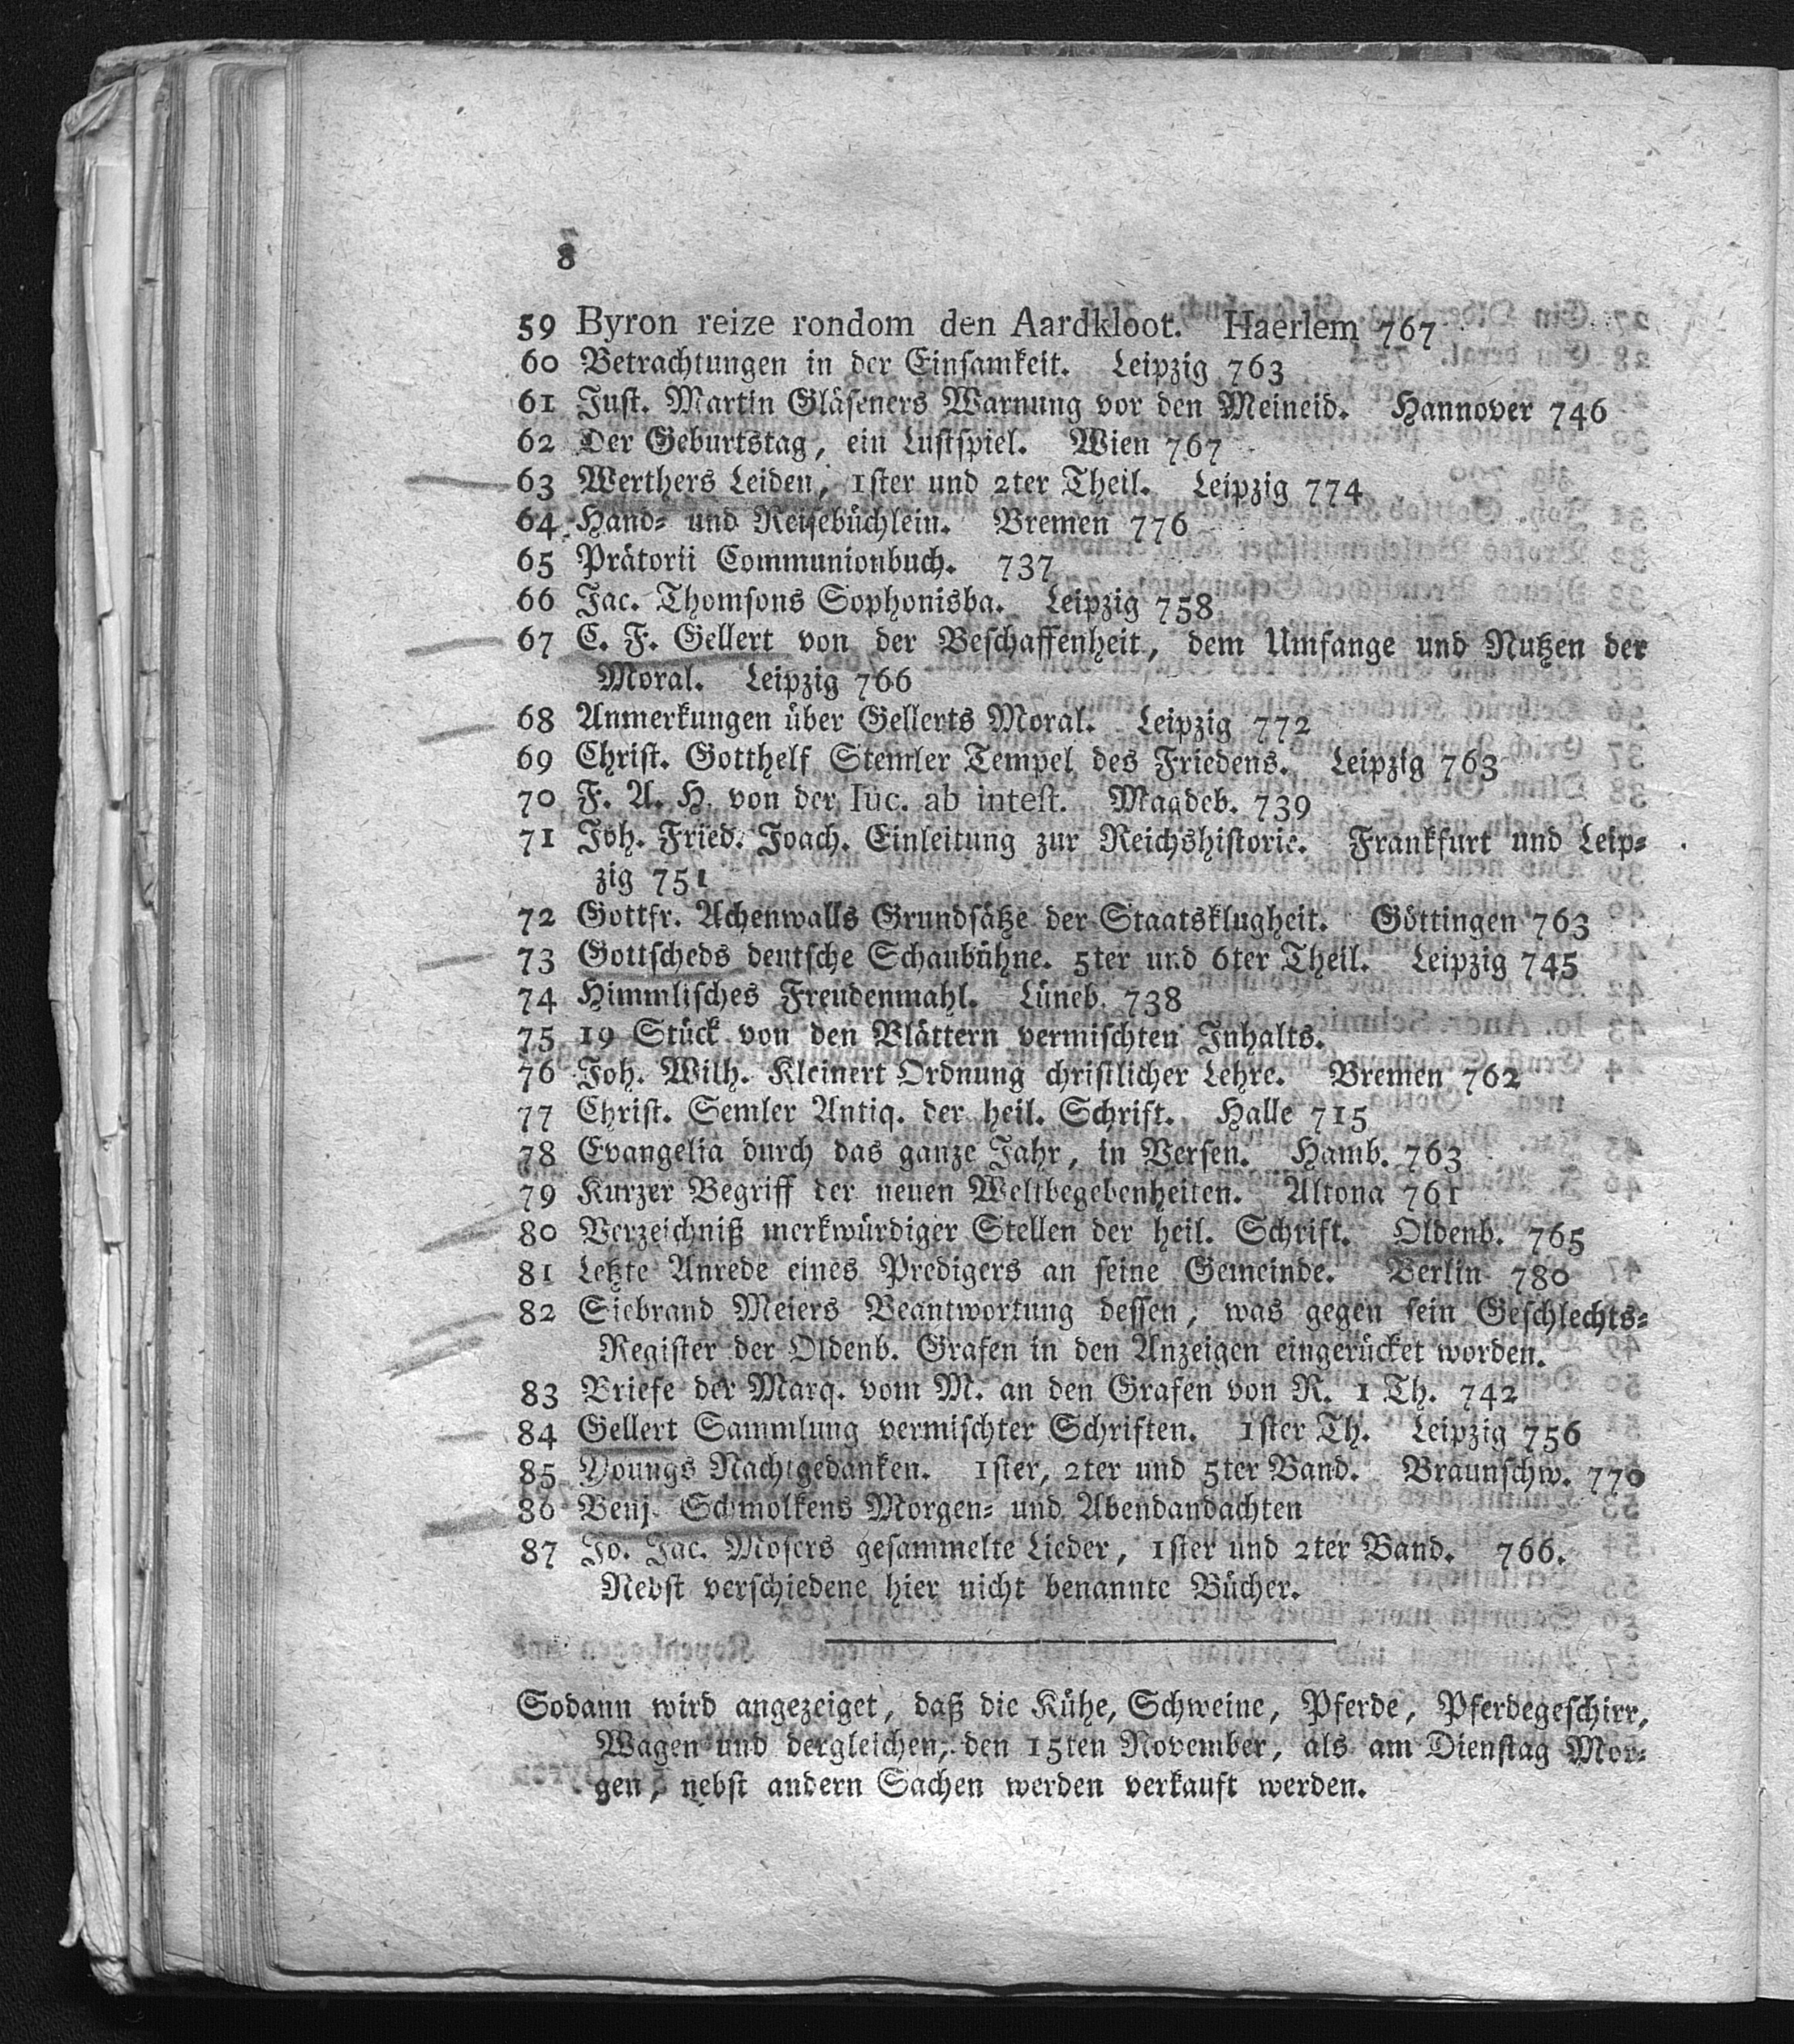 8
59 Byron reize rondom den Aardkloot. Haerlem 767
60 Betrachtungen in der Einsamkeit. Leipzig 763
61 Just. Martin Gläseners Warnung vor den Meineid. Hannover 746
62 Der Geburtstag, ein Lustspiel. Wien 767
63 Werthers Leiden, 1ster und 2ter Theil. Leipzig 774
64 Hand- und Reisebüchlein. Bremen 776
65 Prätorii Communionbuch. 737
66 Jac. Thomsons Sophonisba. Leipzig 758
67 C. F. Gellert von der Beschaffenheit, dem Umfange und Nutzen der
Moral. Leipzig 766
68 Anmerkungen über Gellerts Moral. Leipzig 772
69 Christ. Gotthelf Stemler Tempel des Friedens. Leipzig 763
70 F. A. H. von der Iuc. ab intest. Magdeb. 739
71 Joh. Fried. Joach. Einleitung zur Reichshistorie. Frankfurt und Leip-
zig 751
72 Gottfr. Achenwalls Grundsätze der Staatsklugheit. Göttingen 763
73 Gottscheds deutsche Schaubühne. 5ter und 6ter Theil. Leipzig 745
74 Himmlisches Freudenmahl. Lüneb. 738
75 19 Stück von den Blättern vermischten Inhalts.
76 Joh. Wilh. Kleinert Ordnung christlicher Lehre. Bremen 762
77 Christ. Semler Antiq. der heil. Schrift. Halle 715
78 Evangelia durch das ganze Jahr, in Versen. Hamb. 763
79 Kurzer Begriff der neuen Weltbegebenheiten. Altona 761
80 Verzeichniß merkwürdiger Stellen der heil. Schrift. Oldenb. 765
81 Letzte Anrede eines Predigers an seine Gemeinde. Berlin 780
82 Siebrand Meiers Beantwortung dessen, was gegen sein Geschlechts-
Register der Oldenb. Grafen in den Anzeigen eingerücket worden.
83 Briefe der Marq. vom M. an den Grafen von R. 1 Th. 742
84 Gellert Sammlung vermischter Schriften. 1ster Th. Leipzig 756
85 Youngs Nachtgedanken. 1ster, 2ter und 5ter Band. Braunschw. 770
86 Benj. Schmolkens Morgen- und Abendandachten
87 Jo. Jac. Mosers gesammelte Lieder, 1ster und 2ter Band. 766.
Nebst verschiedene hier nicht benannte Bücher.
Sodann wird angezeiget, daß die Kühe, Schweine, Pferde, Pferdegeschirr,
Wagen und dergleichen, den 15ten November, als am Dienstag Mor-
gen, nebst andern Sachen werden verkauft werden.